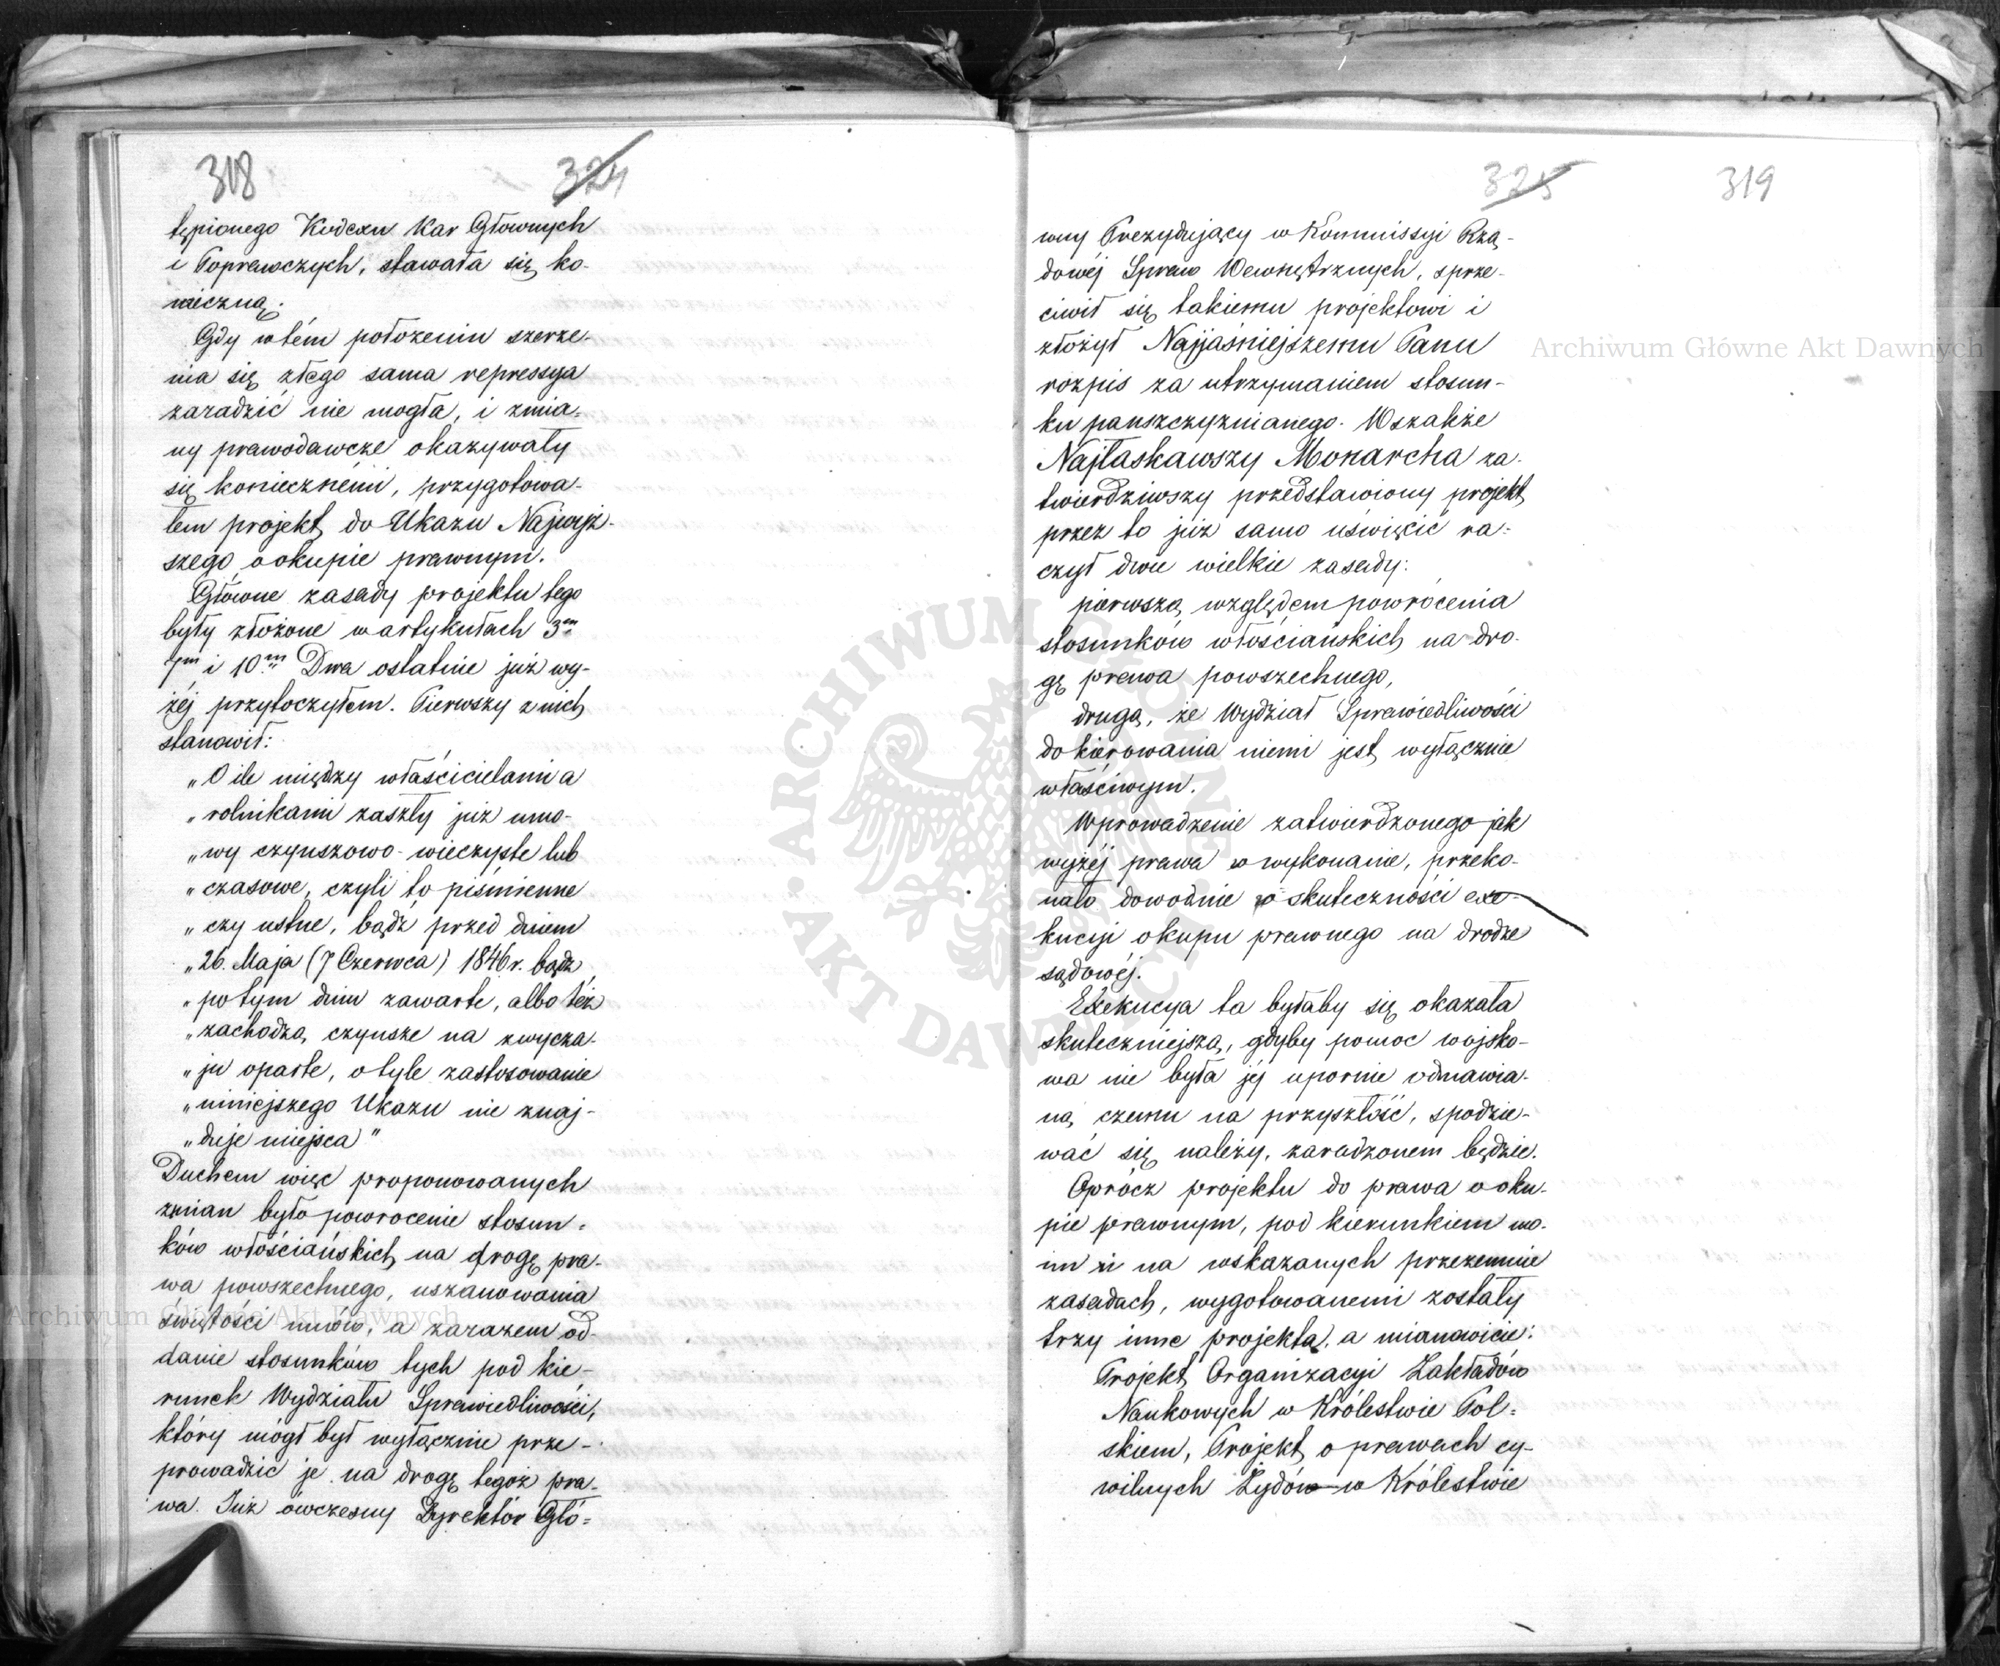 318
324
tępionego Kodexu Kar Głownych
i Poprawczych, stawała się ko-
nieczną.
Gdy w tém położeniu szerze-
nia się złego sama repressya
zaradzić nie mogła, i zmia-
ny prawodawcze okazywały
się koniecznémi, przygotowa-
łem projekt do Ukazu Najwyż-
szego o okupie prawnym.
Główne zasady projektu tego
były złożone w artykułach 3m
7m i 10m Dwa ostatnie już wy-
żéj przytoczyłem. Pierwszy z nich
stanowił:
„O ile między właścicielami a
„rolnikami zaszły już umo-
„wy czynszowo-wieczyste lub
„czasowe, czyli to piśmienne
„czy ustne, bądź przed dniem
„26. Maja (7 Czerwca) 1846 r. bądź
„po tym dniu zawarte, albo téż
„zachodzą czynsze na zwycza-
„ju oparte, o tyle zastosowanie
„niniejszego Ukazu nie znaj-
„duje miejsca"
Duchem więc proponowanych
zmian było powrocenie stosun-
ków włościańskich na drogę pra-
wa powszechnego, uszanowania
świętości umów, a zarazem od-
danie stosunków tych pod kie-
runek Wydziału Sprawiedliwości,
który mógł był wyłącznie prze-
prowadzić je na drogę tegoż pra-
wa. Już ówczesny Dyrektór Głó-
325
319
wny Prezydujący w Kommissyi Rzą-
dowéj Spraw Wewnętrznych, sprze-
ciwił się takiemu projektowi i
złożył Najjaśniejszemu Panu
rozpis za utrzymaniem stosun-
ku pańszczyznianego. Wszakże
Najłaskawszy Monarcha za-
twierdziwszy przedstawiony projekt
przez to już samo uświęcić ra-
czył dwie wielkie zasady:
pierwszą względem powrócenia
stosunków włościańskich na dro-
gę prawa powszechnego,
drugą, że Wydział Sprawiedliwości
do kierowania niemi jest wyłącznie
właściwym.
Wprowadzenie zatwierdzonego jak
wyżéj prawa w wykonanie, przeko-
nało dowodnie o skuteczności exe-
kucyi okupu prawnego na drodze
sądowéj.
Exekucya ta byłaby się okazała
skuteczniejszą, gdyby pomoc wojsko-
wa nie była jéj upornie odmawia-
ną, czemu na przyszłość, spodzie-
wać się należy, zaradzonem będzie.
Oprócz projektu do prawa o oku-
pie prawnym, pod kierunkiem mo-
im i na wskazanych przezemnie
zasadach, wygotowanemi zostały
trzy inne projekta, a mianowicie:
Projekt Organizacyi Zakładów
Naukowych w Królestwie Pol-
skiem, Projekt o prawach cy-
wilnych Żydów w Królestwie
Archiwum Główne Akt Dawnych
Archiwum Główne Akt Dawnych
ARCHIWUM GŁÓWNE • AKT DAWNYCH •